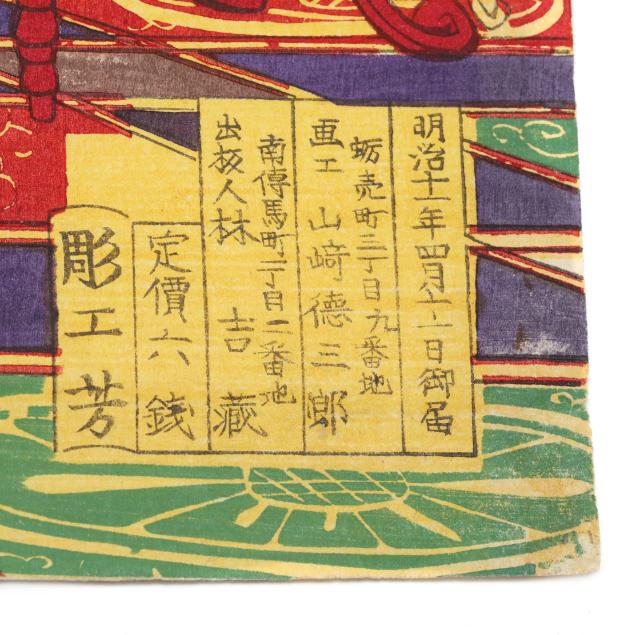 明治十一年四月六十一日御届
蛎売町三丁目九番地
画工 山﨑德三郎
南傳馬町一丁目二番地
出板人林 吉藏
定價六銭
彫工芳